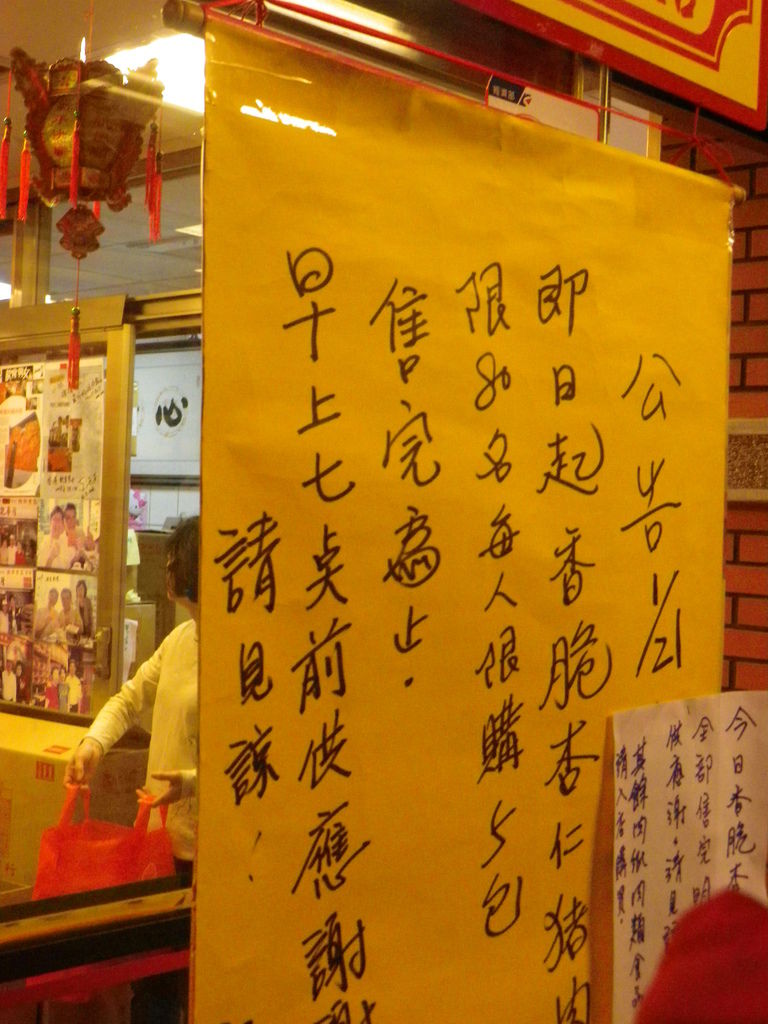 公告 1/21
即日起香脆杏仁猪肉
限80名每人限購5包
售完為止.
早上七点前供應謝謝
請見諒!
今日香脆杏
全部售完明
供應謝.請見
其餘肉紙肉類食品
請入店購買.
心
經濟部